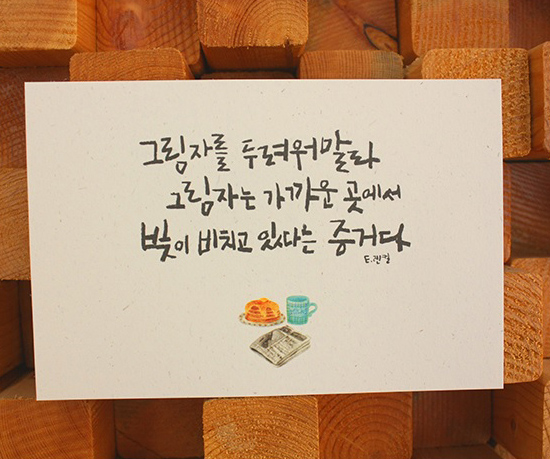 그림자를 두려워말라
그림자는 가까운 곳에서
빛이 비치고 있다는 증거다
E.렌컬